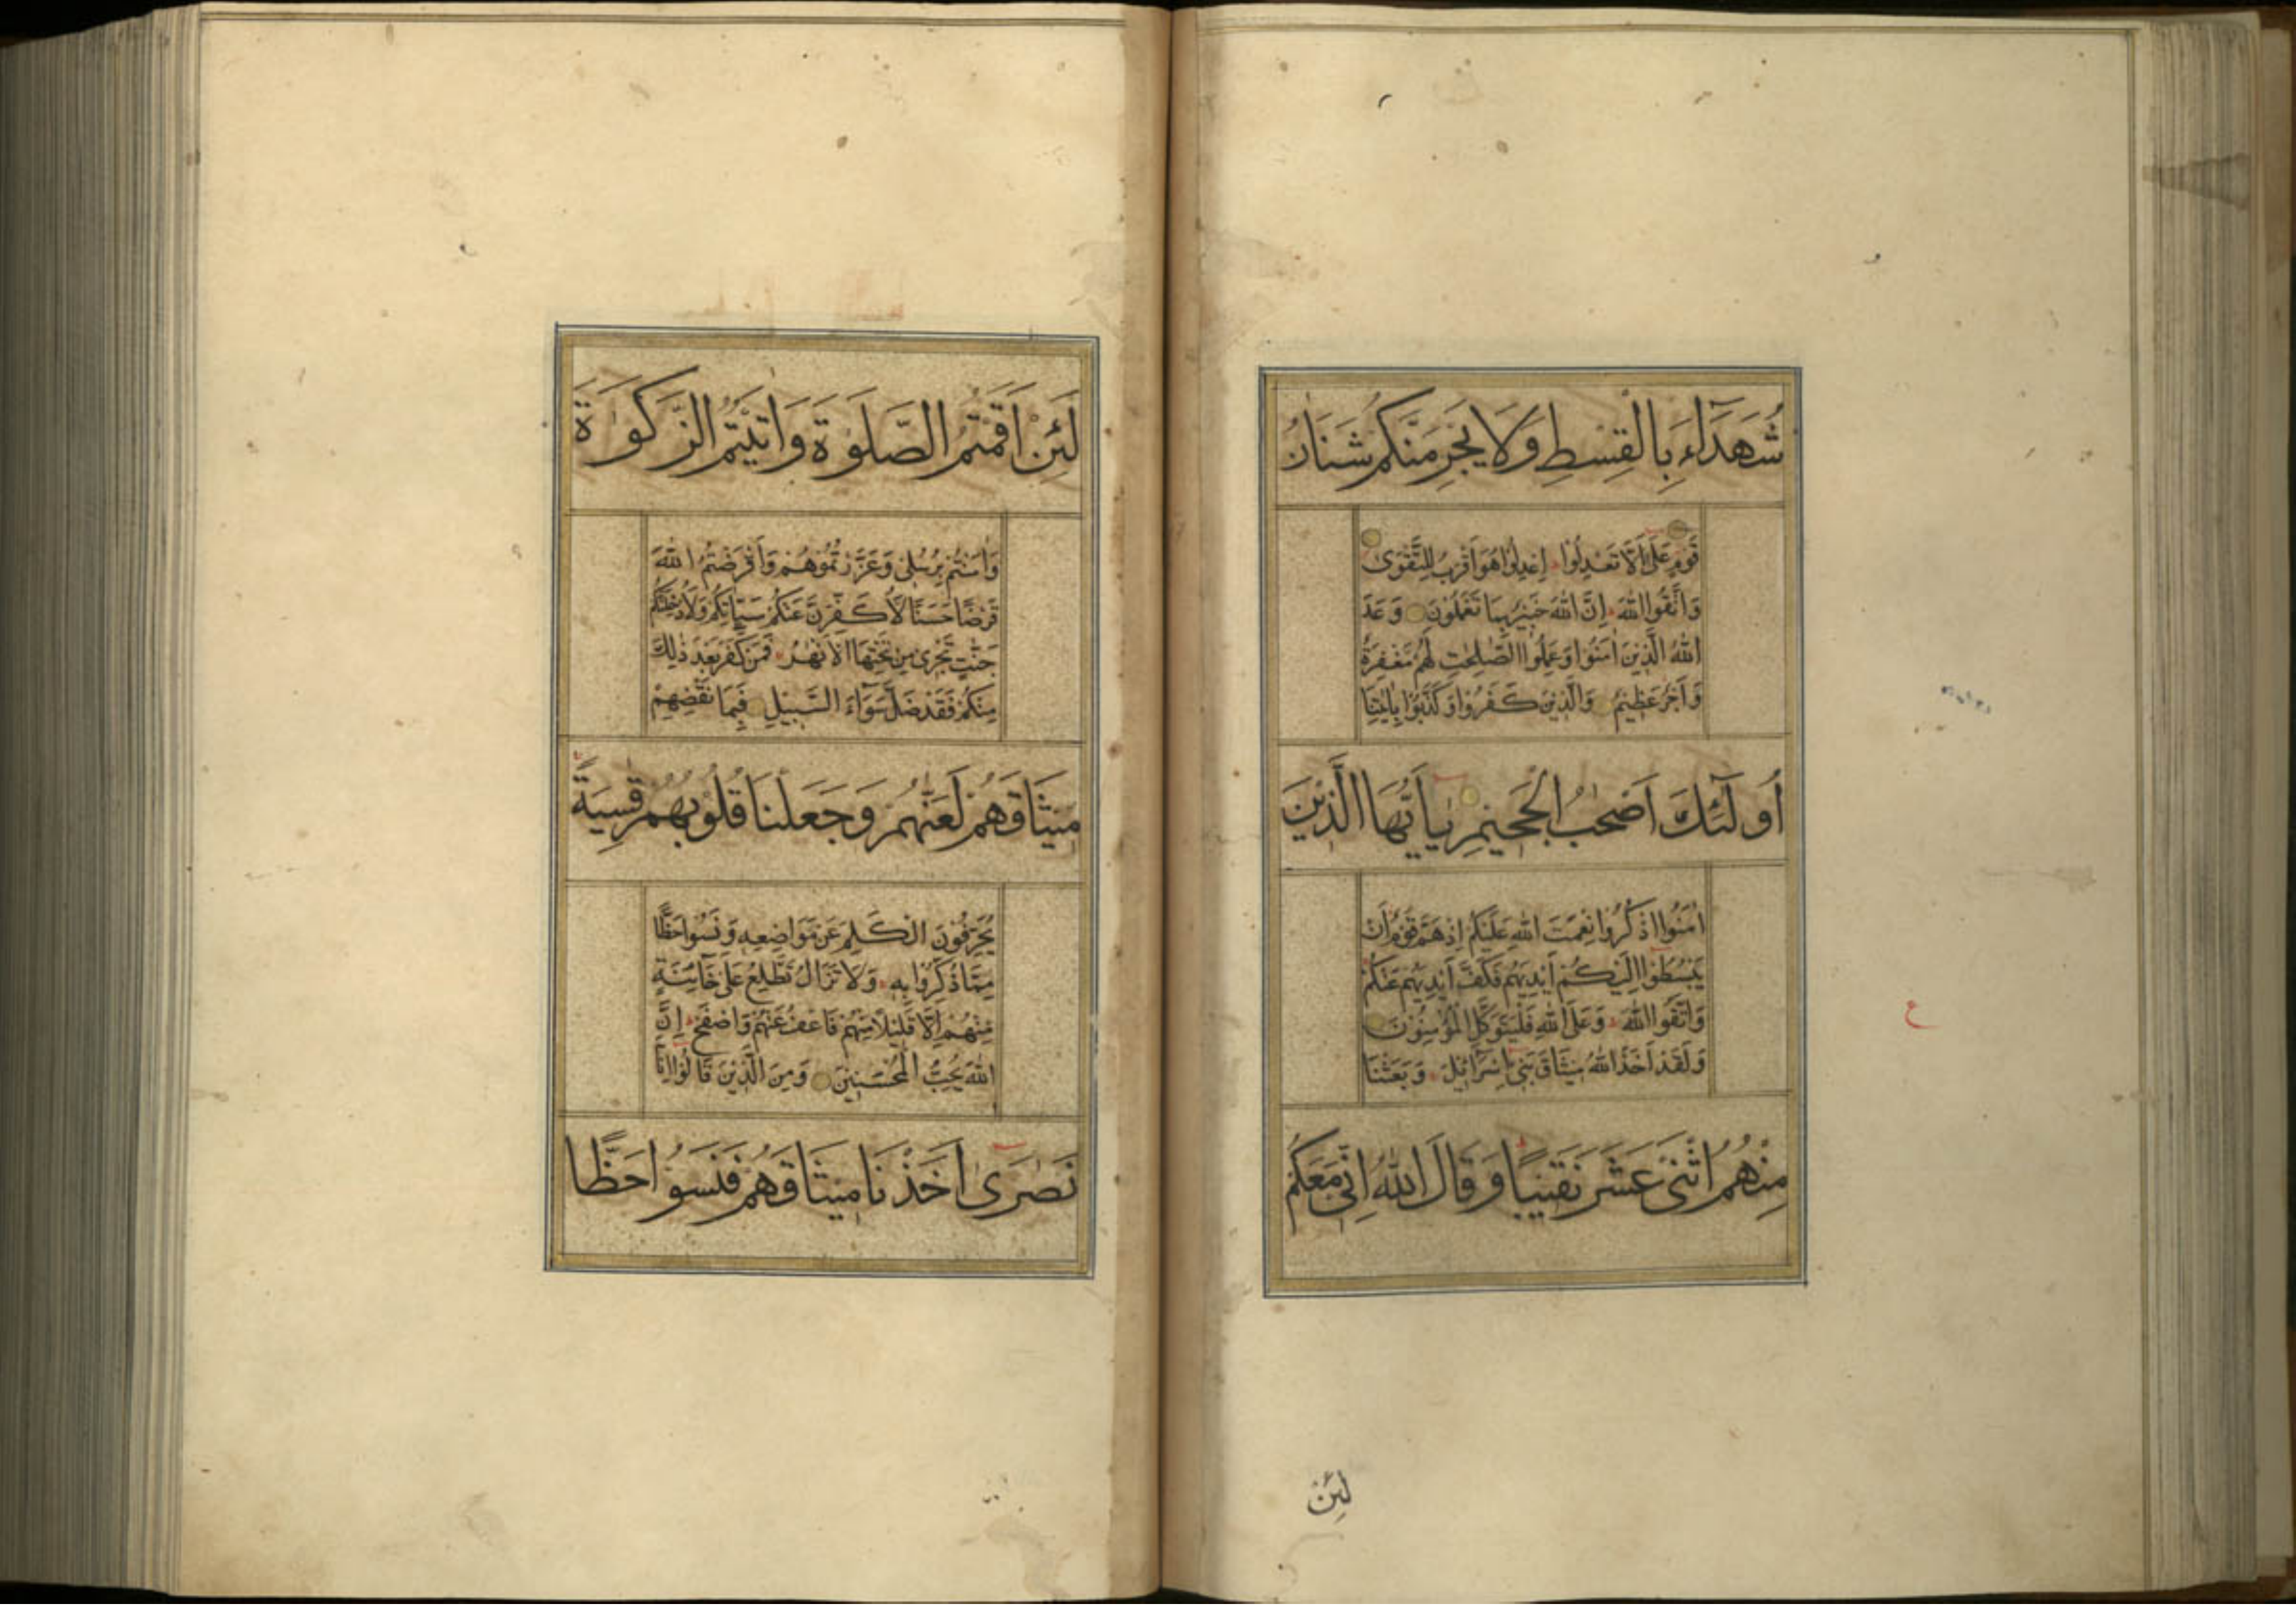 شُهَدَآءَ بِالْقِسْطِ وَلَا يَجْرِمَنَّكُمْ شَنَاٰنُ
قَوْمٍ عَلٰٓى اَلَّا تَعْدِلُوْا اِعْدِلُوْا هُوَ اَقْرَبُ لِلتَّقْوٰى
وَاتَّقُوا اللّٰهَ اِنَّ اللّٰهَ خَبِيْرٌ بِمَا تَعْمَلُوْنَ وَعَدَ
اللّٰهُ الَّذِيْنَ اٰمَنُوْا وَعَمِلُوا الصّٰلِحٰتِ لَهُمْ مَغْفِرَةٌ
وَاَجْرٌ عَظِيْمٌ وَالَّذِيْنَ كَفَرُوْا وَكَذَّبُوْا بِاٰيٰتِنَا
اُولٰٓئِكَ اَصْحٰبُ الْجَحِيْمِ يٰٓاَيُّهَا الَّذِيْنَ
اٰمَنُوا اذْكُرُوْا نِعْمَتَ اللّٰهِ عَلَيْكُمْ اِذْ هَمَّ قَوْمٌ اَنْ
يَبْسُطُوْا اِلَيْكُمْ اَيْدِيَهُمْ فَكَفَّ اَيْدِيَهُمْ عَنْكُمْ
وَاتَّقُوا اللّٰهَ وَعَلَى اللّٰهِ فَلْيَتَوَكَّلِ الْمُؤْمِنُوْنَ
وَلَقَدْ اَخَذَ اللّٰهُ مِيْثَاقَ بَنِىْٓ اِسْرَآئِيْلَ وَبَعَثْنَا
مِنْهُمُ اثْنَىْ عَشَرَ نَقِيْبًا وَقَالَ اللّٰهُ اِنِّىْ مَعَكُمْ
ع
لَئِنْ
لَئِنْ اَقَمْتُمُ الصَّلٰوةَ وَاٰتَيْتُمُ الزَّكٰوةَ
وَاٰمَنْتُمْ بِرُسُلِىْ وَعَزَّرْتُمُوْهُمْ وَاَقْرَضْتُمُ اللّٰهَ
قَرْضًا حَسَنًا لَاُكَفِّرَنَّ عَنْكُمْ سَيِّاٰتِكُمْ وَلَاُدْخِلَنَّكُمْ
جَنّٰتٍ تَجْرِىْ مِنْ تَحْتِهَا الْاَنْهٰرُ فَمَنْ كَفَرَ بَعْدَ ذٰلِكَ
مِنْكُمْ فَقَدْ ضَلَّ سَوَآءَ السَّبِيْلِ فَبِمَا نَقْضِهِمْ
مِيْثَاقَهُمْ لَعَنّٰهُمْ وَجَعَلْنَا قُلُوْبَهُمْ قٰسِيَةً
يُحَرِّفُوْنَ الْكَلِمَ عَنْ مَوَاضِعِهٖ وَنَسُوْا حَظًّا
مِمَّا ذُكِّرُوْا بِهٖ وَلَا تَزَالُ تَطَّلِعُ عَلٰى خَآئِنَةٍ
مِنْهُمْ اِلَّا قَلِيْلًا مِنْهُمْ فَاعْفُ عَنْهُمْ وَاصْفَحْ اِنَّ
اللّٰهَ يُحِبُّ الْمُحْسِنِيْنَ وَمِنَ الَّذِيْنَ قَالُوْٓا اِنَّا
نَصٰرٰٓى اَخَذْنَا مِيْثَاقَهُمْ فَنَسُوْا حَظًّا